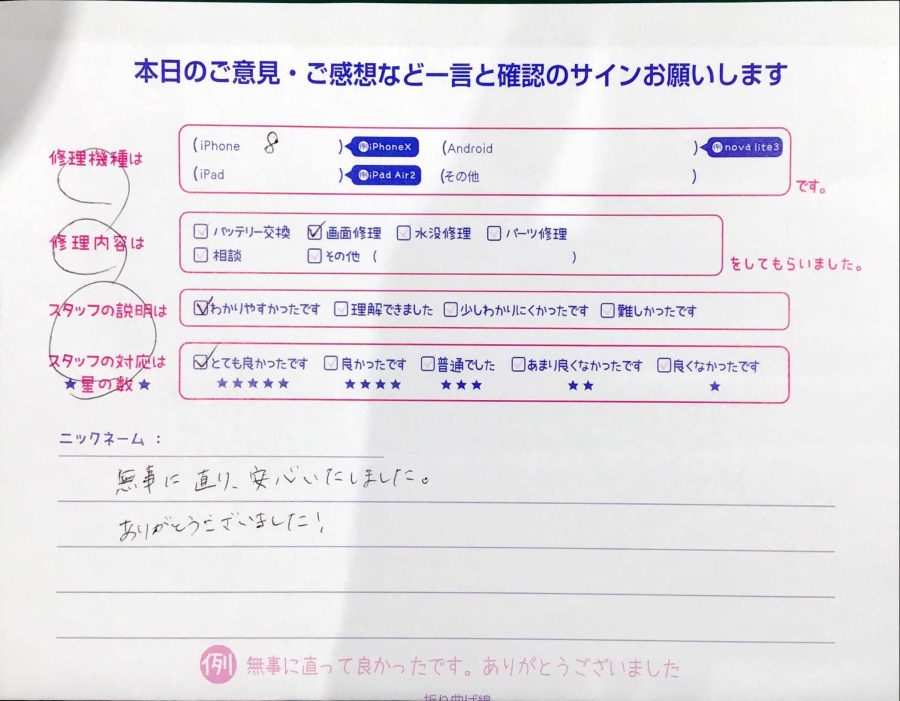 本日のご意見・ご感想など一言と確認のサインお願いします
修理機種は
(iPhone 8 ) 例iPhoneX (Android ) 例nova lite3
(iPad ) 例iPad Air2 (その他 ) です。
修理内容は
バッテリー交換 画面修理 水没修理 パーツ修理
相談 その他 ( ) をしてもらいました。
スタッフの説明は わかりやすかったです 理解できました 少しわかりにくかったです 難しかったです
スタッフの対応は とても良かったです 良かったです 普通でした あまり良くなかったです 良くなかったです
★星の数★ ★★★★★ ★★★★ ★★★ ★★ ★
ニックネーム：
無事に直り、安心いたしました。
ありがとうございました!
例 無事に直って良かったです。ありがとうございました
折り曲げ線